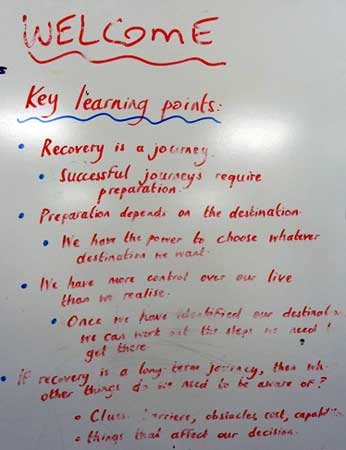 WELCOME
Key learning points:
• Recovery is a journey.
• Successful journeys require
preparation.
• Preparation depends on the destination.
• We have the power to choose whatever
destination we want.
• We have more control over our live
than we realise.
• Once we have identified our destinat
we can work out the steps we need
get there.
• IF recovery is a long term journey, then wh
other things do we need to be aware of?
• Clues: barriers, obstacles, cost, capabilit
• things that affect our decision.